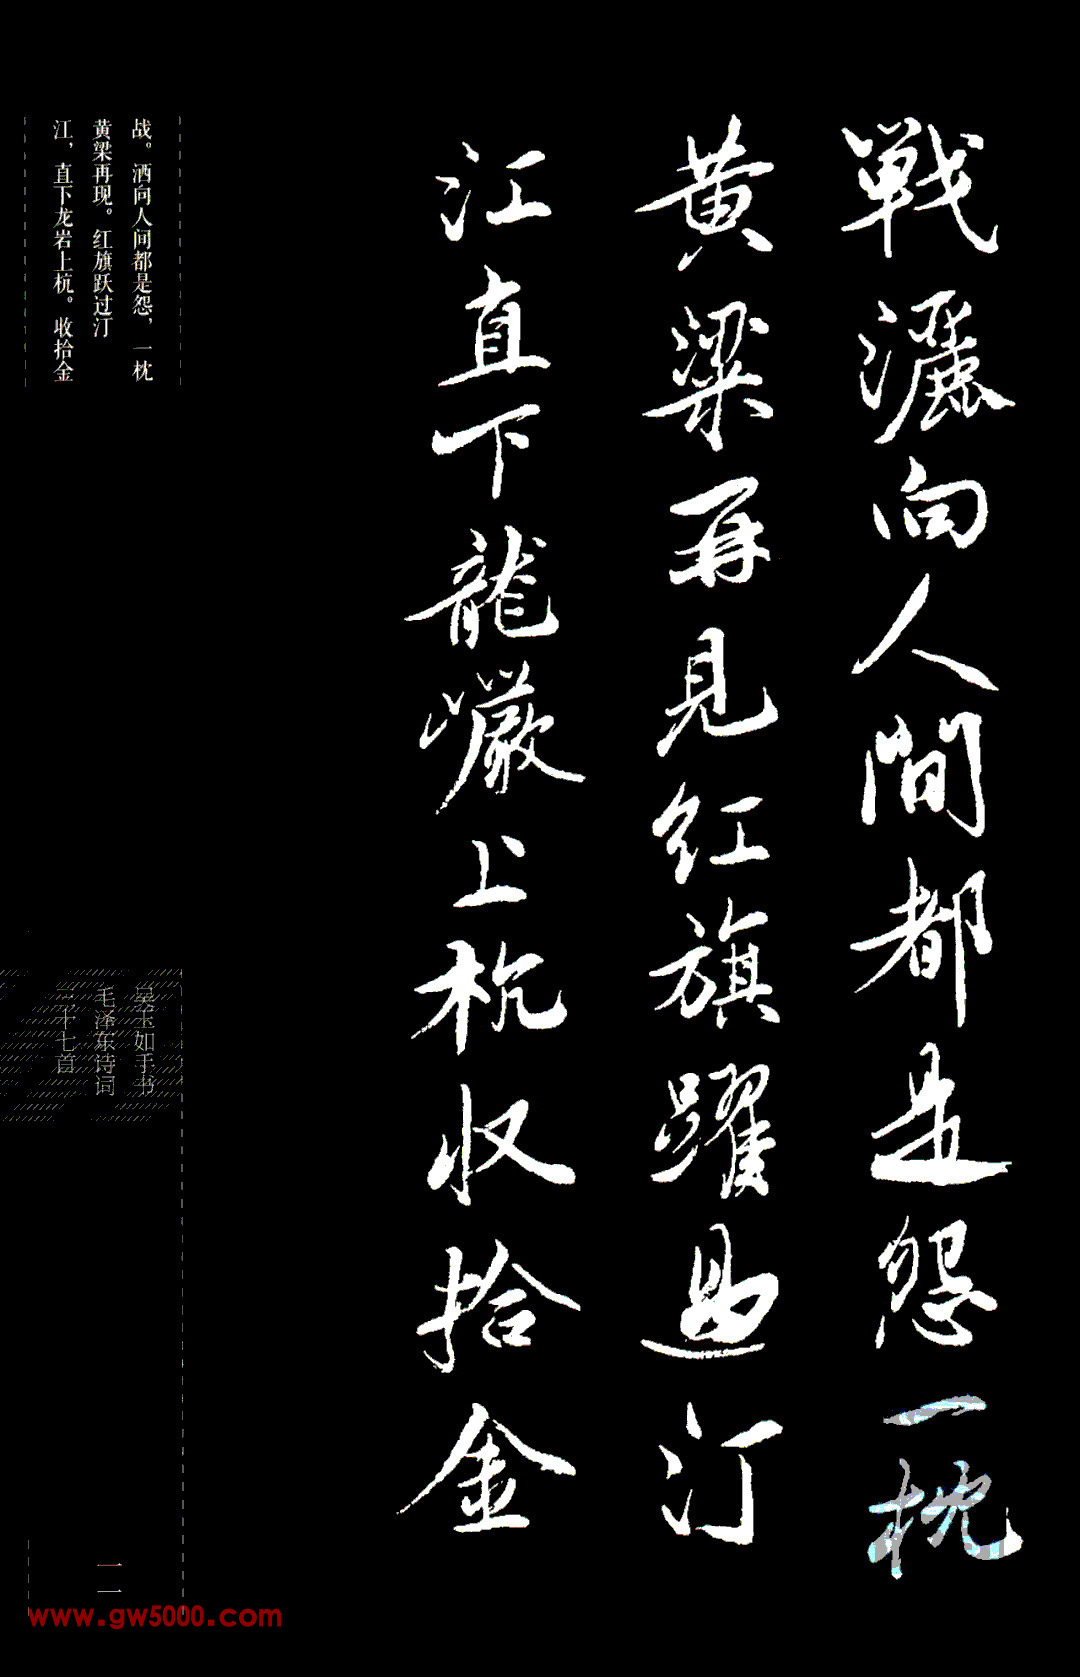 戰灑向人間都是怨一枕
黄粱再見红旗躍過汀
江直下龍巖上杭收拾金
战。洒向人间都是怨，一枕
黄梁再现。红旗跃过汀
江，直下龙岩上杭。收拾金
吴玉如手书
毛泽东诗词
三十七首
一一
www.gw5000.com